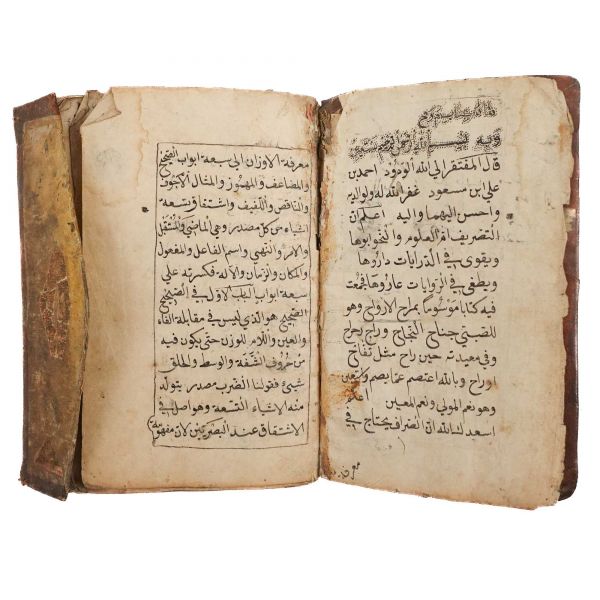 بسم الله الرحمن الرحيم
قال المفتقر الى الله الودود احمد بن
علي ابن مسعود غفر الله له ولوالديه
واحسن اليهما واليه اعلم ان
التصريف ام العلوم والنحو ابوها
ويقوى في الدرايات داروها
ويطغى في الروايات عاروها فجمعت
فيه كتابا موسوما بمراح الارواح وهو
للصبي جناح النجاح وراح رحراح
وفي معيدته حين راح مثل تفاح
او راح وبالله اعتصم عما يصم واستعين
وهو نعم المولى ونعم المعين اعلم
اسعدك الله ان الصراف يحتاج في
معرفة الاوزان الى سبعة ابواب الصحيح
والمضاعف والمهموز والمثال والاجوف
والناقص واللفيف واشتقاق تسعة
اشياء من كل مصدر وهي الماضي والمستقبل
والامر والنهي واسم الفاعل والمفعول
والمكان والزمان والالة فكسرته على
سبعة ابواب الباب الاول في الصحيح
الصحيح هو الذي ليس في مقابلة الفاء
والعين واللام للوزن حتى يكون فيه
من حروف الشفة والوسط والحلق
شيئ فقولنا الضرب مصدر يتولد
منه الاشياء التسعة وهو اصل في
الاشتقاق عند البصريين لان مفهومه